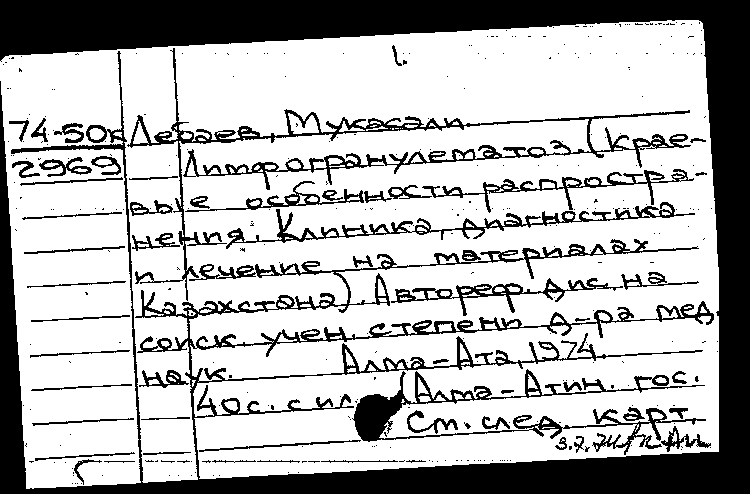 1.
74-50к Лебаев, Мукасали.
2969 Лимфогранулематоз. (Крае-
вые особенности распростра-
нения. Клиника, диагностика
и лечение на материалах
Казахстана). Автореф. дис. на
соиск. учен. степени д-ра мед.
наук. Алма-Ата, 1974.
40с. с ил. (Алма-Атин. гос.
См. след. карт.